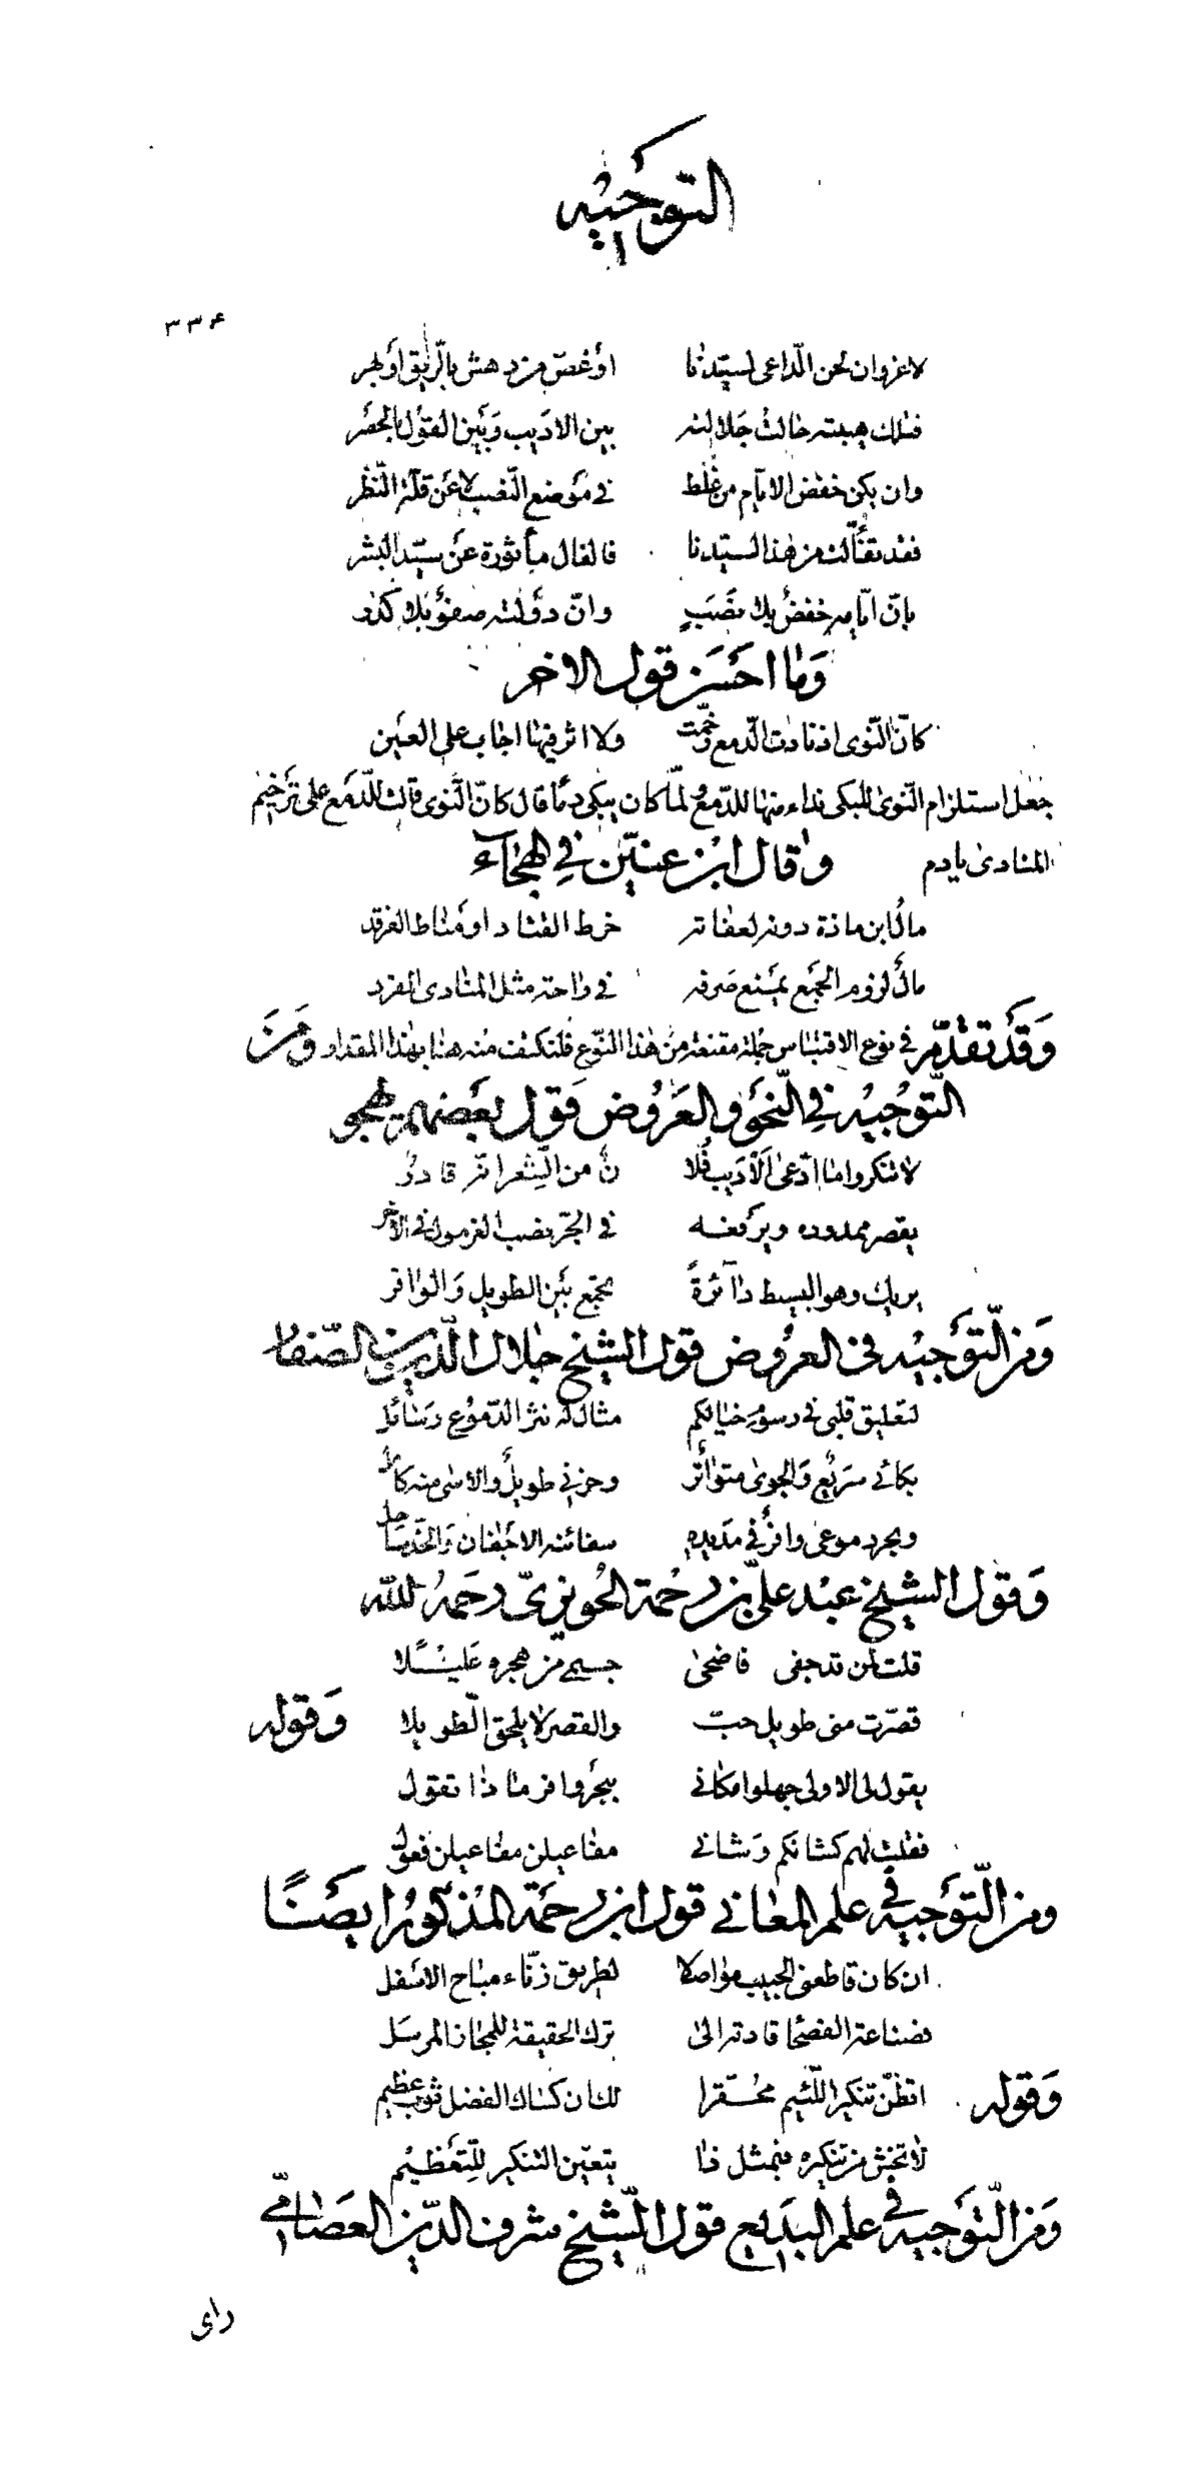 التوجيه
٣٣۴
لا غروان لحن الدّاعى لسيّدنا اوغصّ من دهش بالرّيق اوبهر
فتلك هيبته حالت جلالته بين الاديب وبين القول بالحصر
وان يكن خفض الايّام من غلط فى موضع النّصب لا عن قلّة النّظر
فقد تفألت من هذا لسيّدنا فالفال مأثورة عن سيّد البشر
بانّ ايّامه خفض بلا نصب وانّ دولته صفو بلا كدر
وما احسن قول الاخر
كانّ النّوى اذ نادت الدّمع رخّمت ولا اثر فيها اجاب على العين
جعل استلزام النّوى للبكى نداء منها للدّمع ولمّا كان يبكى دما قال كانّ النّوى قالت للدّمع على ترخيم
المنادى يا دم وقال ابن عنين فى الهجاء
مال ابن مازة دونه لعفاته خرط القتاد او مناط الفرقد
مال لزوم الجمع يمنع صرفه فى راحة مثل المنادى المفرد
وقد تقدّم فى نوع الاقتباس جملة مقنعة من هذا النّوع فلنكتف منه هنا بهذا المقدار ومن
التّوجيه فى النّحو والعروض قول بعضهم يهجو
لا تنكروا ما ادّعى الاديب فلا ن من الشّعر انّه قادر
يقصر ممدوده ويرفعه فى الجرّ نصب الغرمول فى الاخر
يريك وهو البسيط دائرة تجمع بين الطويل والوافر
ومن التّوجيه فى العروض قول الشيخ جلال الدّين الصّفار
لتعليق قلبى فى رسوم خيالكم مثال له نثر الدّموع رسائل
بكائى سريع والجوى متواتر وحزنى طويل والاسى منه كامل
وبحر دموعى وافر فى مديده سفائنه الاجفان والخدّ ساحل
وقول الشيخ عبد علىّ بن رحمة الحويزىّ رحمه الله
قلت لمن قد جفى فاضحى جسمى من هجره عليلا
قصّرت منى طويل حبّ والقصر لا يلحق الطّويلا وقوله
يقول لى الاولى جهلوا مكانى ببحر وافر ماذا تقول
فقلت لهم كشانكم وشانى مفاعيلن مفاعيلن فعول
ومن التّوجيه فى علم المعانى قول ابن رحمة المذكور ايضًا
ان كان قاطعنى الحبيب مواصلا لطريق زنّاء مباح الاسفل
فصناعة الفصحا قادته الى ترك الحقيقة للمجاز المرسل
وقوله اتظنّ تنكير اللّئيم محقّرا لك ان كساك الفضل ثوب عظيم
لا تخش من تنكيره فبمثل ذا يتعيّن التنكير للتّعظيم
ومن التّوجيه فى علم البديع قول الشّيخ شرف الدّين العصامىّ
راى